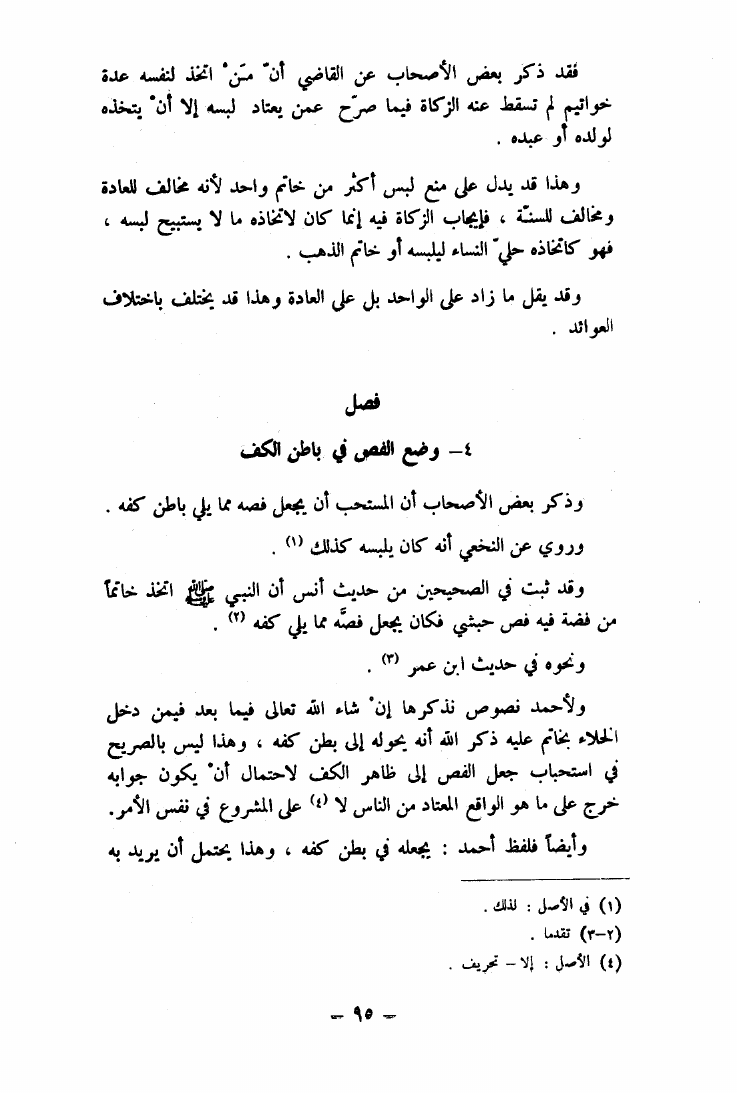 فقد ذكر بعض الأصحاب عن القاضي أنّ مَنْ اتخذ لنفسه عدة
خواتيم لم تسقط عنه الزكاة فيما صرّح عمن يعتاد لبسه إلا أنْ يتخذه
لولده أو عبده .
وهذا قد يدل على منع لبس أكثر من خاتم واحد لأنه مخالف للعادة
ومخالف للسنّة ، فإيجاب الزكاة فيه إنما كان لاتخاذه ما لا يستبيح لبسه ،
فهو كاتخاذه حليّ النساء ليلبسه أو خاتم الذهب .
وقد يقل ما زاد على الواحد بل على العادة وهذا قد يختلف باختلاف
العوائد .
فصل
٤– وضع الفص في باطن الكف
وذكر بعض الأصحاب أن المستحب أن يجعل فصه مما يلي باطن كفه .
وروي عن النخعي أنه كان يلبسه كذلك (١) .
وقد ثبت في الصحيحين من حديث أنس أن النبي ﷺ اتخذ خاتماً
من فضة فيه فص حبشي فكان يجعل فصَّه مما يلي كفه (٢) .
ونحوه في حديث ابن عمر (٣) .
ولأحمد نصوص نذكرها إنْ شاء الله تعالى فيما بعد فيمن دخل
الخلاء بخاتم عليه ذكر الله أنه يحوله إلى بطن كفه ، وهذا ليس بالصريح
في استحباب جعل الفص إلى ظاهر الكف لاحتمال أنْ يكون جوابه
خرج على ما هو الواقع المعتاد من الناس لا (٤) على المشروع في نفس الأمر.
وأيضاً فلفظ أحمد : يجعله في بطن كفه ، وهذا يحتمل أن يريد به
(١) في الأصل : لذلك .
(٢–٣) تقدما .
(٤) الأصل : إلا – تحريف .
– ٩٥ –